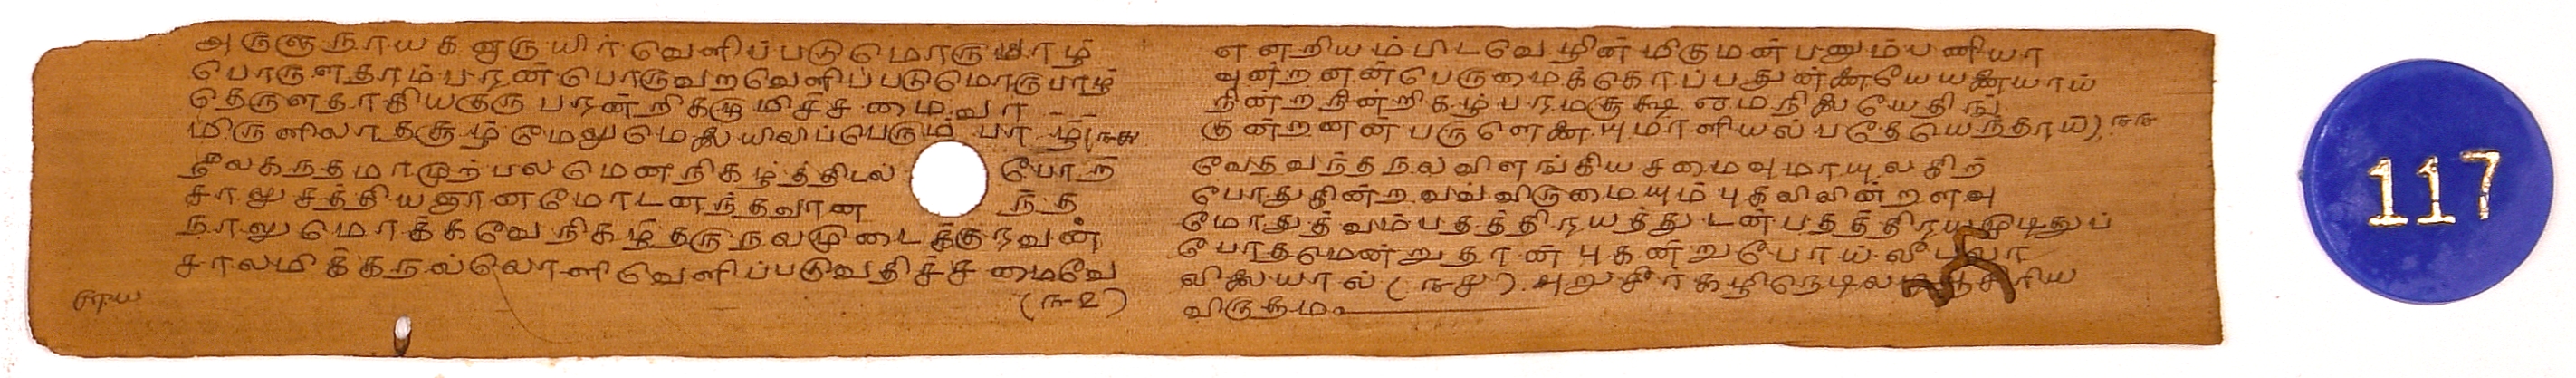 அருளு நாயகனுருயிர் வெளிப்படுமொரு பாழ்
பொருளதாம் பரன் பொருவற வெளிப்படுமொரு பாழ்
தெருளதாகியகுரு பரன்றிகழு மிச்சமைவா
மிருளிலாதசூழ் மேலுமெலையிலிப்பெரும் பாழ்
நீலகந்தமாமுற்பலமென நிகழ்த்திடல் போற்
சாலுசத்தியஞானமோடனந்தவான ந்த
நாலுமொக்கவே நிகழ்தருநலமுடைக்குரவன்
சாலமிக்கநல்லொளிவெளிப்படுவதிச்சமைவே
(௩௨)
என்றியம்பிடவேழின் மிருமன்பனும்பணியா
வுன்றனன்பெருமைக்கொப்பதுன்னையேயனையாய்
நின்றநின்றிகழ்பரமசூக்ஷமநிலையேதிங்
குன்றனன்பருளெனையுமாளியல்பதேயெந்தாய்) ௩௩
வேதவந்தநலவிளங்கியசமைவுமாயுலகிற்
போதுகின்றவவ்விடுமையும் புதவிவின்றளவு
மோதுத்வம்பதத்திரயத்துடன்பதத்திரயமுடிதுப்
போதமென்றுதான்புகன்றுபோய்
விலையால் (௩௪) அறுசீர்கழிநெடில
விருத்தம
117